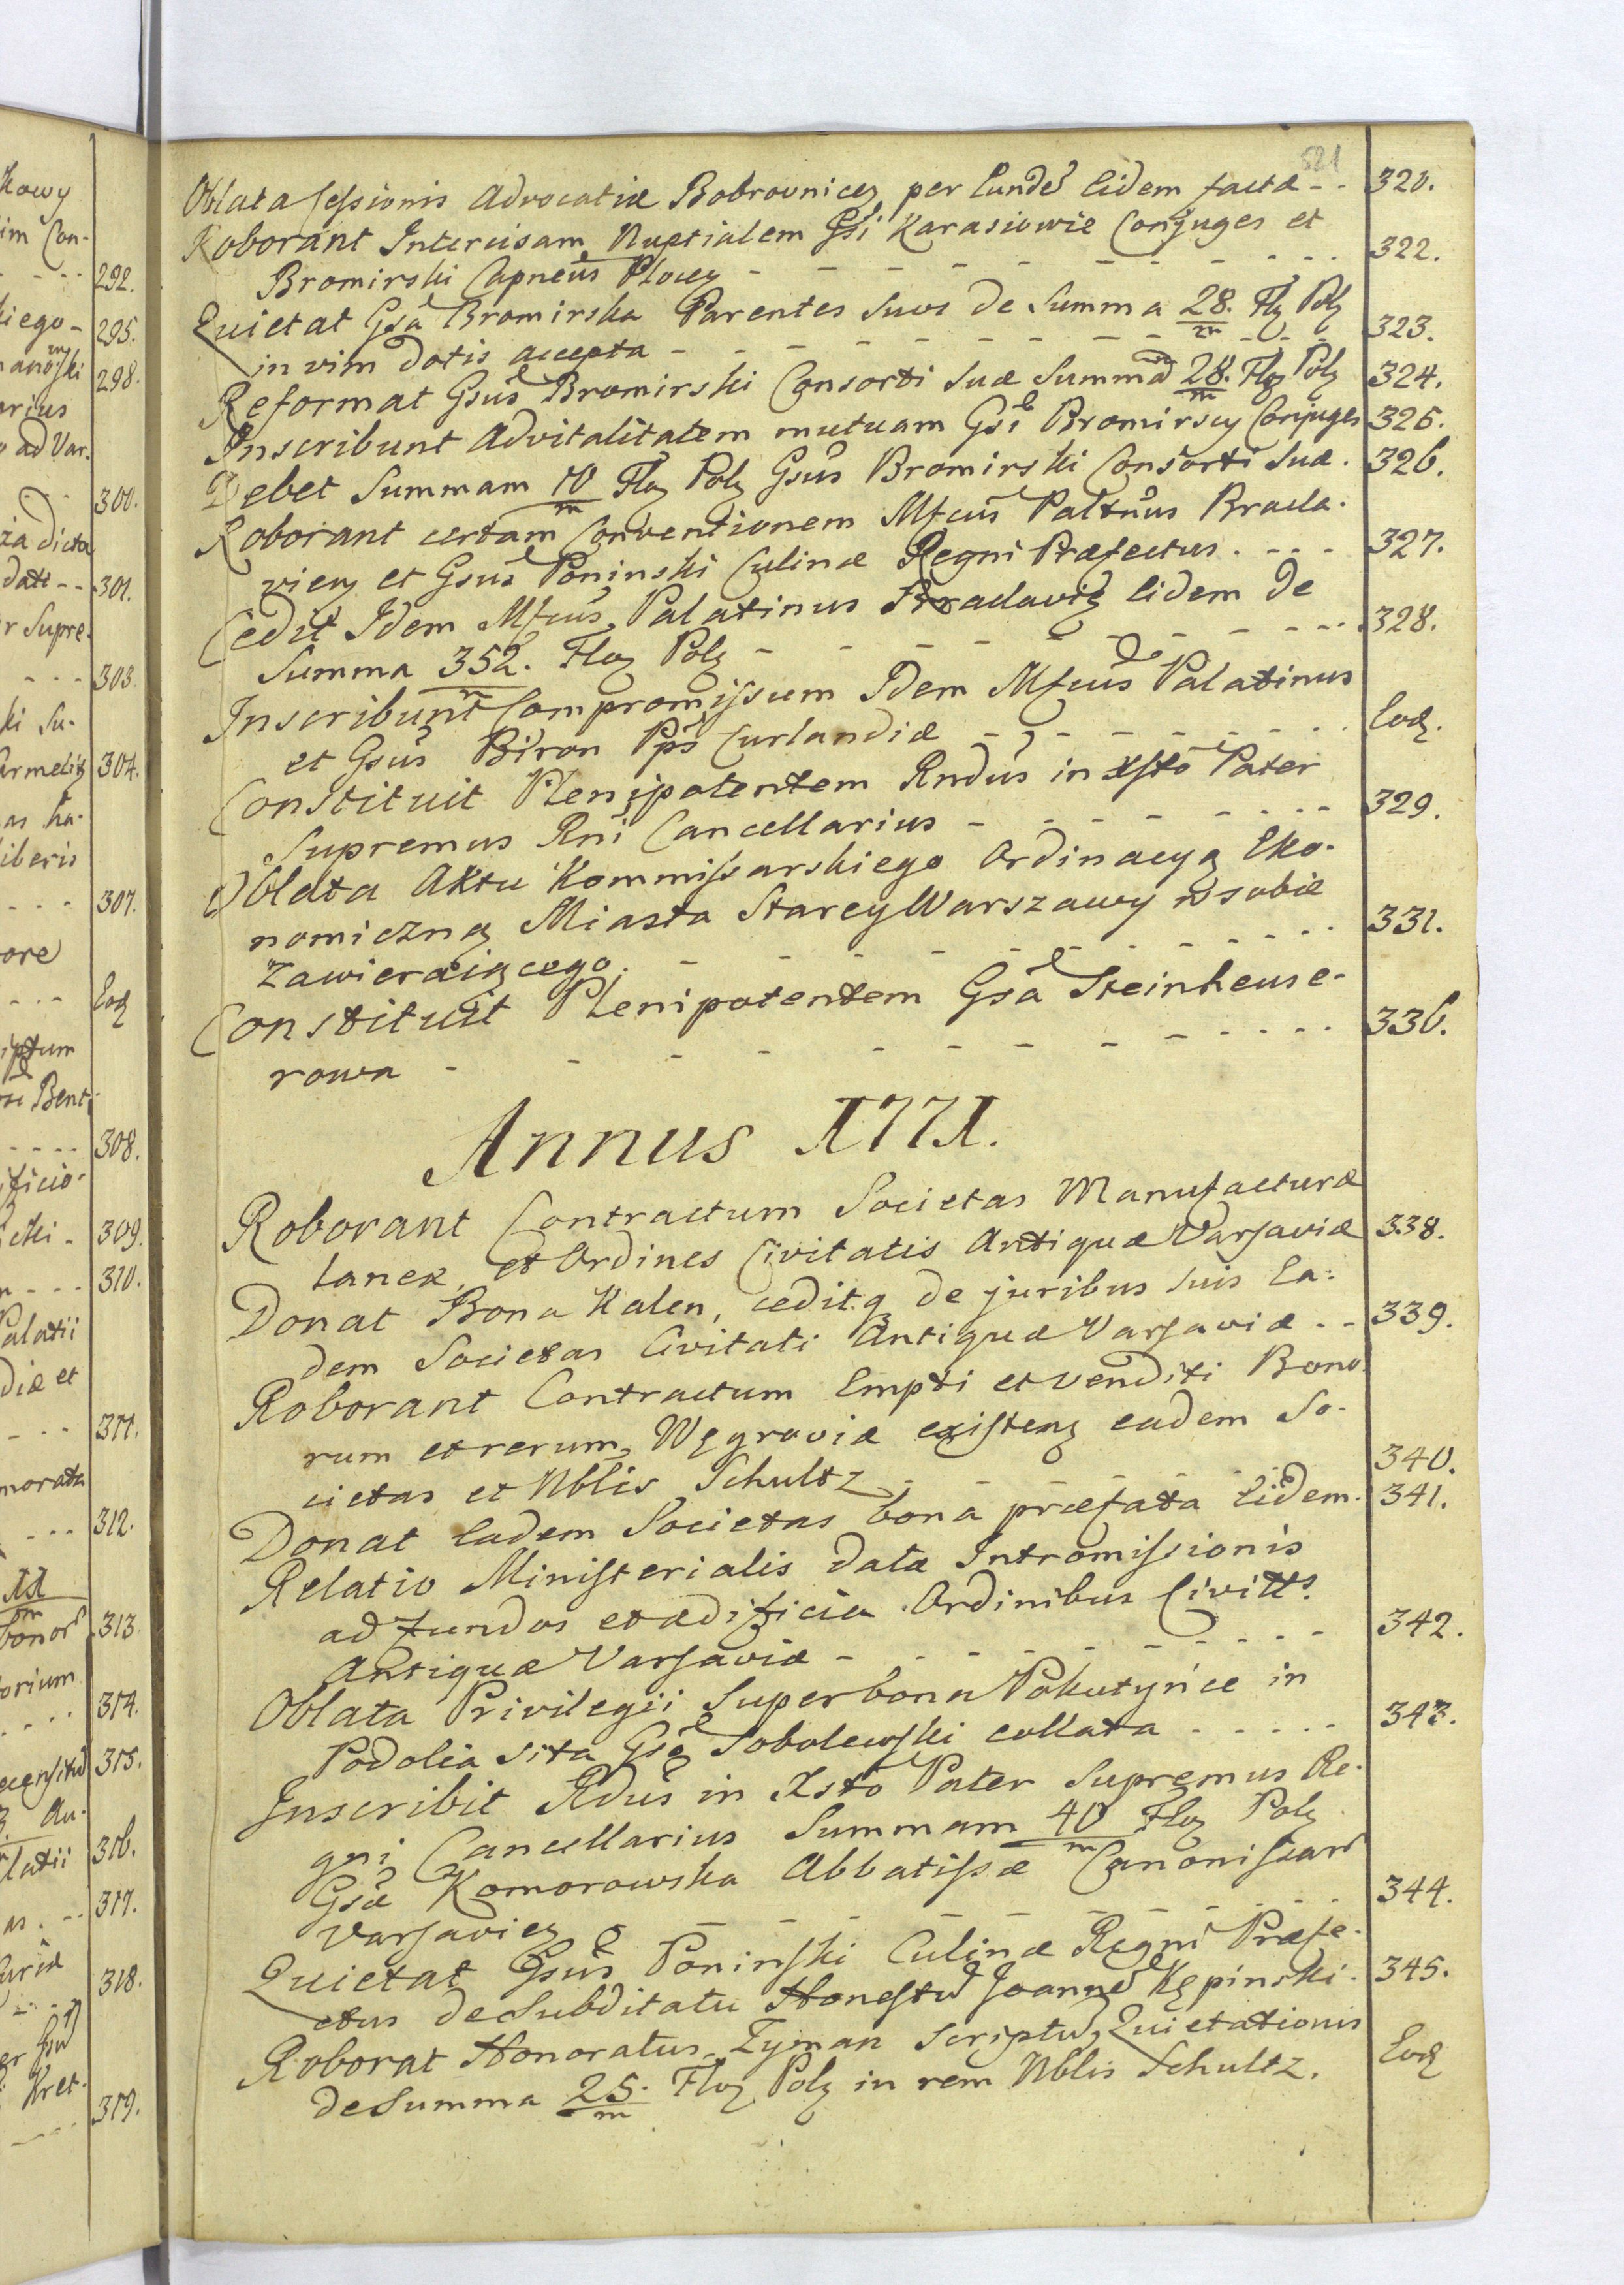 521
Oblata Cessionis Advocatiæ Bobrovnicen per Eundem Eidem factæ - - 320.
Roborant Intercisam Nuptialem Gsi Karasiowie Conjuges et
Bromirski Capneus Plocen - - - 322.
Quietat Gsa Bromirska Parentes suos de Summa 28/m Flor Pol
in vim dotis accepta - - - 323.
Reformat Gsus Bromirski Consorti suæ Summam 28/m Flor Pol 324.
Inscribunt Advitalitatem mutuam Gsi Bromirscy Conjuges 325.
Debet Summam 10/m Flor Pol Gsus Bromirski Consorti suæ. 326.
Roborant certam Conventionem Mfcus Paltnus Bracla-
vien et Gsus Poninski Culinæ Regni Præfectus. - - - 327.
Cedit Idem Mfcus Palatinus Braclavien Eidem de
Summa 352/m. Flor Pol - - - 328.
Inscribunt Compromissum Idem Mfcus Palatinus
et Gsus Biron Pps Curlandiæ - - - Eod.
Constituit Plenipotentem Rndus in Xsto Pater
Supremus Rni Cancellarius - - - 329.
Oblata Aktu Kommissarskiego Ordinacyą Eko-
nomiczną Miasta Starey Warszawy w sobie
zawieraiącego. - - - 331.
Constituit Plenipotentem Gsa Steinheuse-
rowa - - - 336.
Annus 1771.
Roborant Contractum Societas Manufacturæ
laneæ, et Ordines Civitatis Antiquæ Varsaviæ 338.
Donat Bona Kalen, cedit q de juribus suis Ea-
dem Societas Civitati Antiquæ Varsaviæ - - 339.
Roborant Contractum Empti et venditi Bono-
rum et rerum, Węgroviæ existen eadem So-
cietas et Nblis Schultz - - - 340.
Donat Eadem Societas bona præfata Eidem. 341.
Relatio Ministerialis datæ Intromissionis
ad fundos et ædificia Ordinibus Civitts
Antiquæ Varsaviæ - - - 342.
Oblata Privilegii Super bona Pokutynce in
Podolia sita Gso Sobolewski collata - - - 343.
Inscribit Rdus in Xsto Pater Supremus Re-
gni Cancellarius Summam 40/m Flor Pol
Gsæ Komorowska Abbatissæ Canonissarum
Varsavien - - - 344.
Quietat Gsus Poninski Culinæ Regni Præfe-
ctus de Subditatu Honestum Joannem Kępinski. 345.
Roborat Honoratus Zyman Scriptum Quietationis
de Summa 25/m. Flor Pol in rem Nblis Schultz. Eod